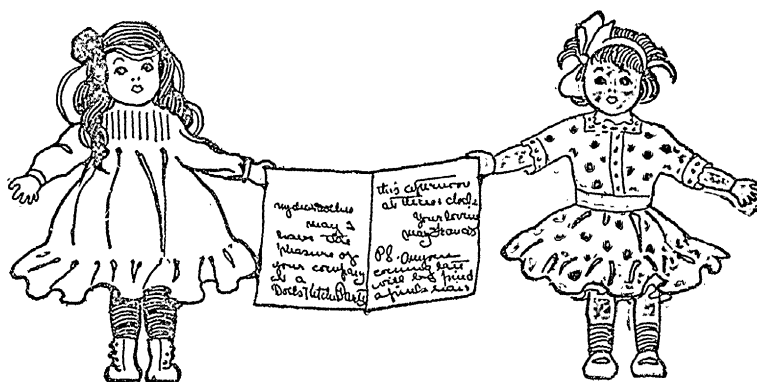 my dear
may I
have the
pleasure of
your company
at a
Dolls Party
this afternoon
at three o'clock
your loving
may
PS. anyone
coming late
will be fined
a